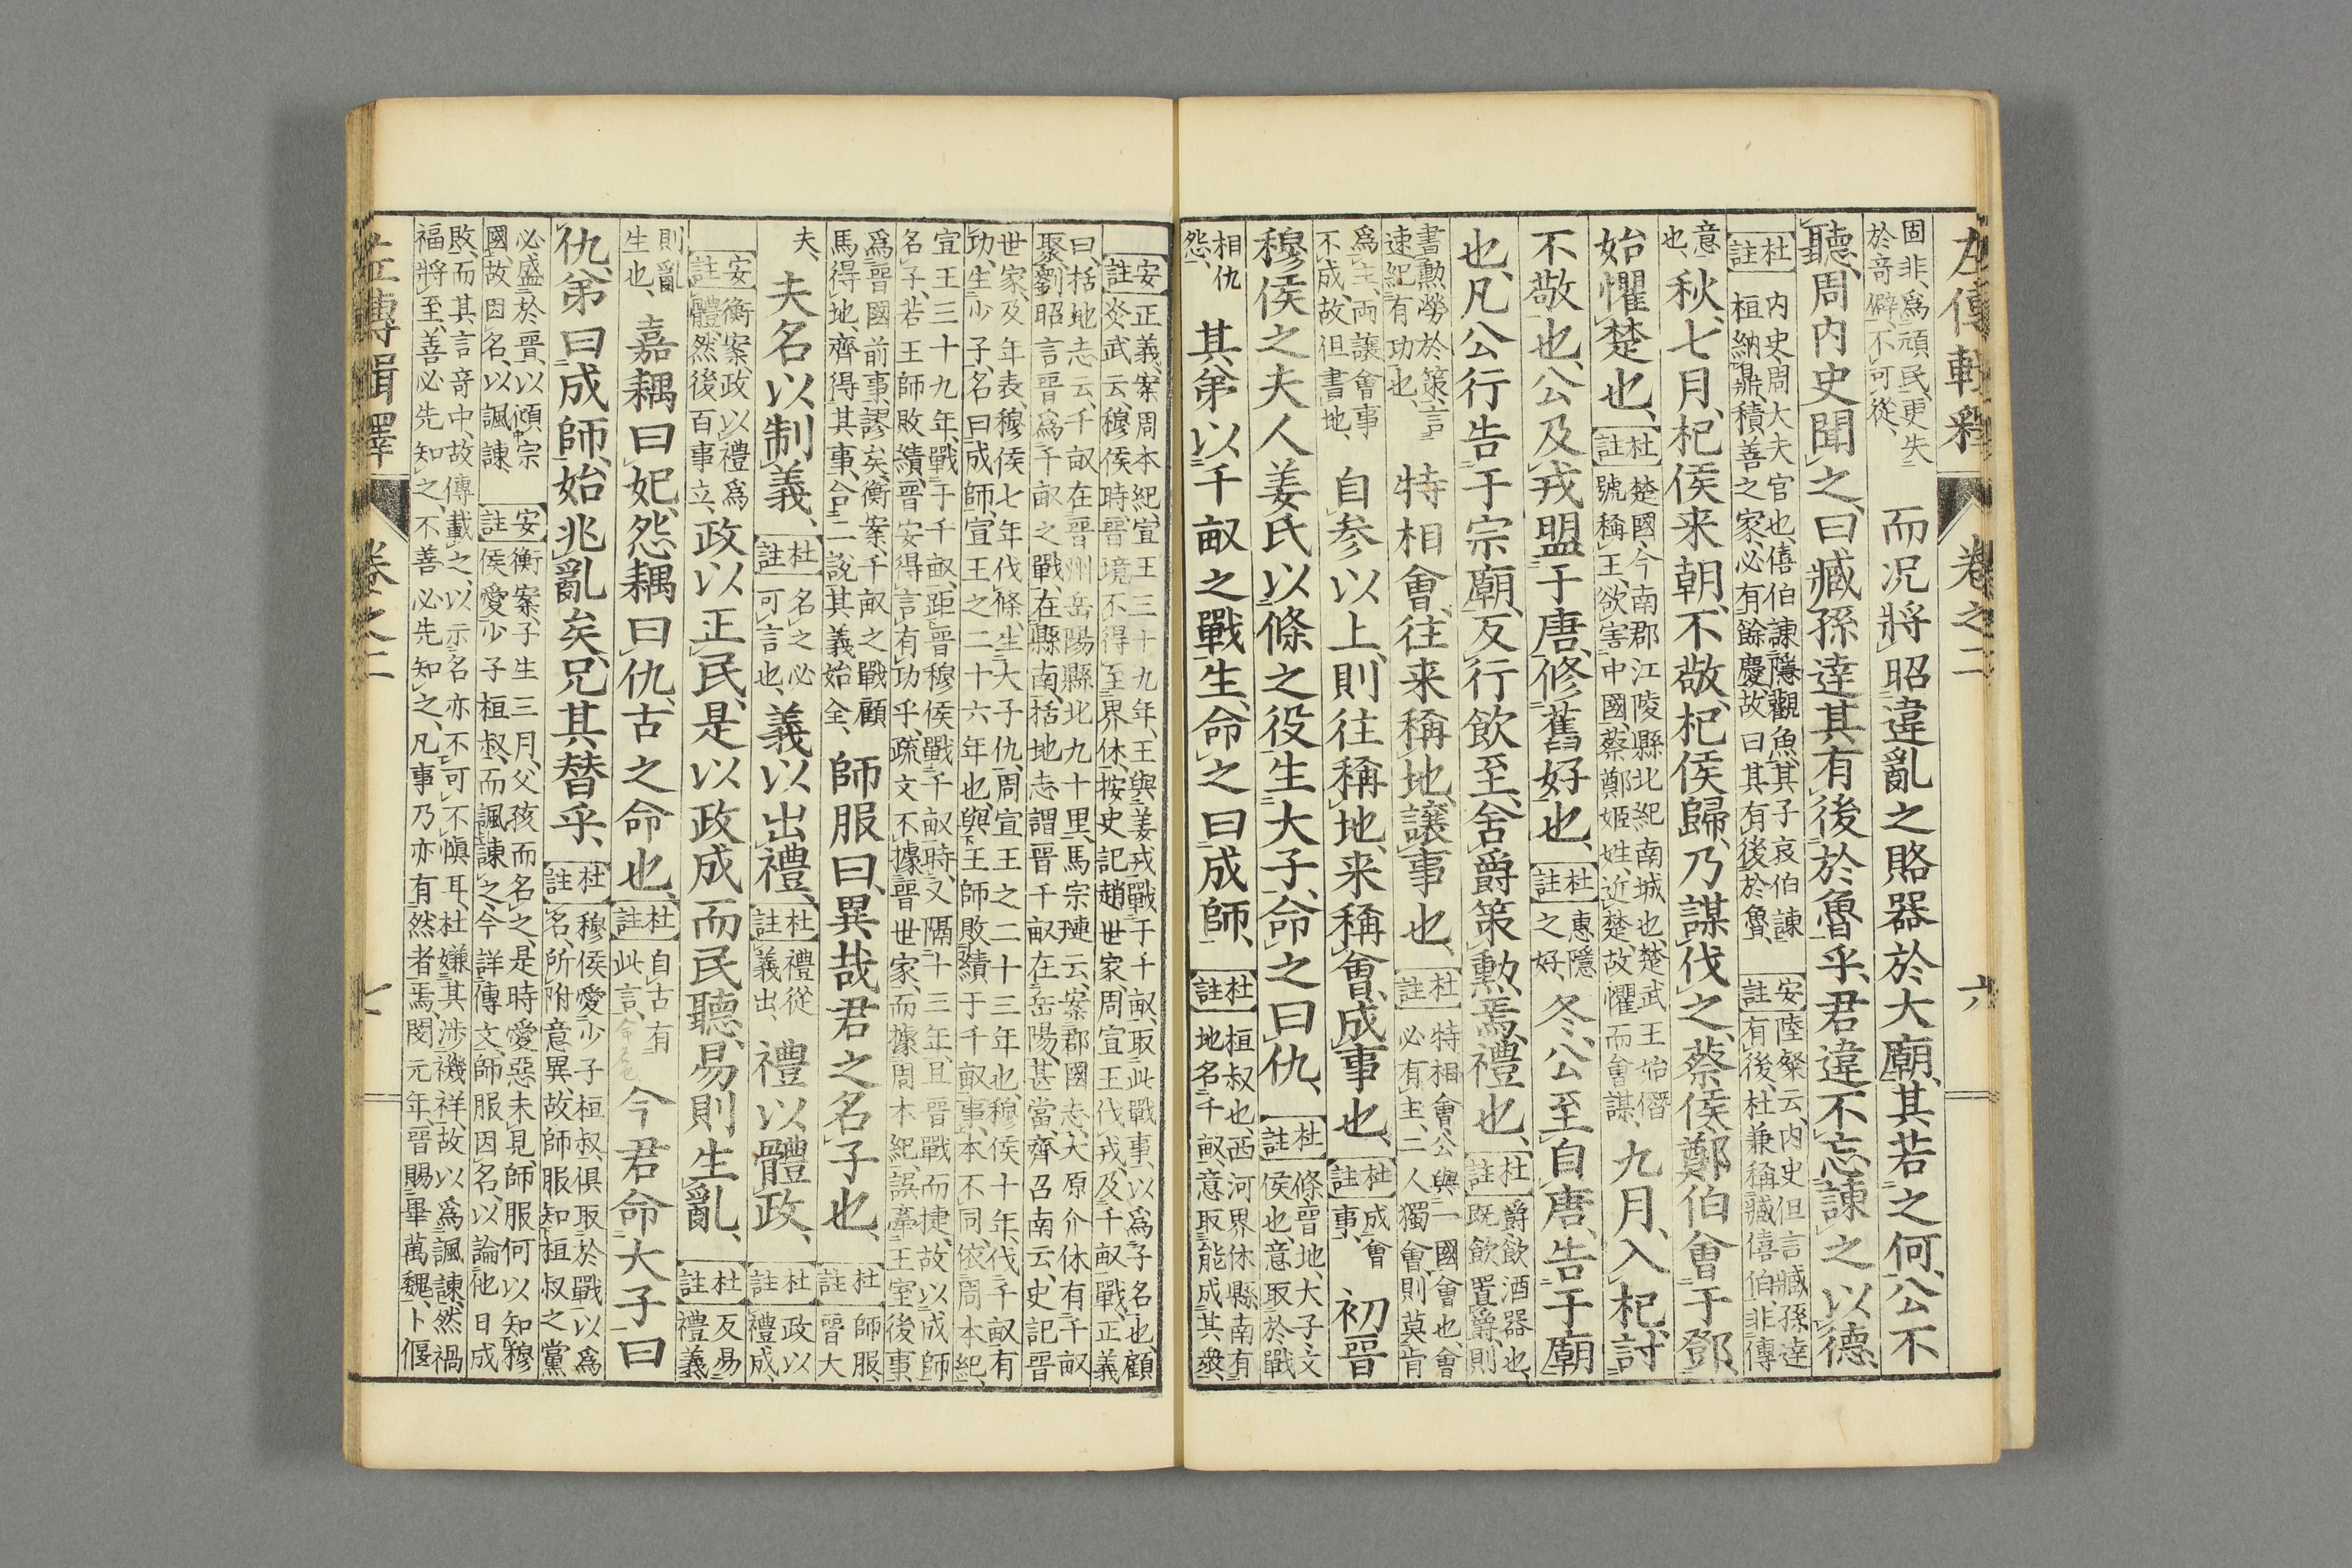 左傳輯釋 卷之二 六
固非爲頑民、更失於奇僻、不可從、而況將昭違亂之賂器於大廟、其若之何、公不
聽、周内史聞之、曰、臧孫達其有後於魯乎、君違不忘諫之以德、
杜註 内史周大夫官也、僖伯諫隱觀魚、其子哀伯諫桓納鼎、積善之家、必有餘慶、故曰其有後於魯、安註 陸粲云、内史但言臧孫達有後、杜兼稱臧僖伯、非傳
意也、秋、七月、杞侯来朝、不敬、杞侯歸、乃謀伐之、蔡侯鄭伯會于鄧、
始懼楚也、杜註 楚國、今南郡江陵縣北紀南城也、楚武王始僭號稱王、欲害中國、蔡鄭姬姓、近楚、故懼而會謀、九月、入杞、討
不敬也、公及戎盟于唐、修舊好也、杜註 惠隱之好、冬、公至自唐、告于廟
也、凡公行告于宗廟、反行飲至、舍爵策勲焉、禮也、杜註 爵飲酒器也、既飲置爵、則
書勲勞於策、言速紀有功也、特相會、往来稱地、讓事也、杜註 特相會、公與一國會也、會必有主、二人獨會、則莫肯
爲主、両讓會事不成、故但書地、自参以上、則往稱地、来稱會、成事也、杜註 成會事、初晉
穆侯之夫人姜氏以條之役生大子、命之曰仇、杜註 條晉地、大子文侯也、意取於戰
相仇怨、其弟以千畝之戰生、命之曰成師、杜註 桓叔也、西河界休縣南有地名千畝、意取能成其衆、
安註 正義、案周本紀、宣王三十九年、王與姜戎戰于千畝、取此戰事、以爲子名也、顧炎武云、穆侯時、晉境不得至界休、按史記趙世家、周宣王伐戎、及千畝戰、正義
曰、括地志云、千畝在晉州岳陽縣北九十里、馬宗璉云、案郡國志、大原介休有千畝聚、劉昭言晉爲千畝之戰、在縣南、括地志謂晉千畝在岳陽、甚當、齊召南云、史記晉
世家、及年表、穆侯七年伐條、生大子仇、周宣王之二十三年也、穆侯十年、伐千畝有功、生少子、名曰成師、宣王之二十六年也、與王師敗績于千畝事、本不同、依周本紀、
宣王三十九年、戰于千畝、距晉穆侯戰千畝時、又隔十三年、且晉戰而捷、故以成師名子、若王師敗績、晉安得言有功乎、疏文不據晉世家、而據周本紀、誤牽王室後事、
爲晉國前事、謬矣、衡案、千畝之戰、顧馬得地、齊得其事、合二説、其義始全、師服曰、異哉君之名子也、杜註 師服、晉大
夫、夫名以制義、杜註 名之必可言也、義以出禮、杜註 禮從義出、禮以體政、杜註 政以禮成、
安註 衡案、政以禮爲體、然後百事立、政以正民、是以政成而民聽、易則生亂、杜註 反易禮義
則亂生也、嘉耦曰妃、怨耦曰仇、古之命也、杜註 自古有此言、今君命大子曰
仇、弟曰成師、始兆亂矣、兄其替乎、杜註 穆侯愛少子桓叔、俱取於戰以爲名、所附意異、故師服知桓叔之黨
必盛於晉、以傾宗國、故因名、以諷諫、安註 衡案、子生三月、父孩而名之、是時愛惡未見、師服何以知穆侯愛少子桓叔、而諷諫之、今詳傳文、師服因名、以論他日成
敗、而其言奇中、故傳載之、以示名亦不可不愼耳、杜嫌其渉禨祥、故以爲諷諫、然禍福將至、善必先知之、不善必先知之、凡事乃亦有然者焉、閔元年、晉賜畢萬魏、卜偃
左傳輯釋 卷之二 七